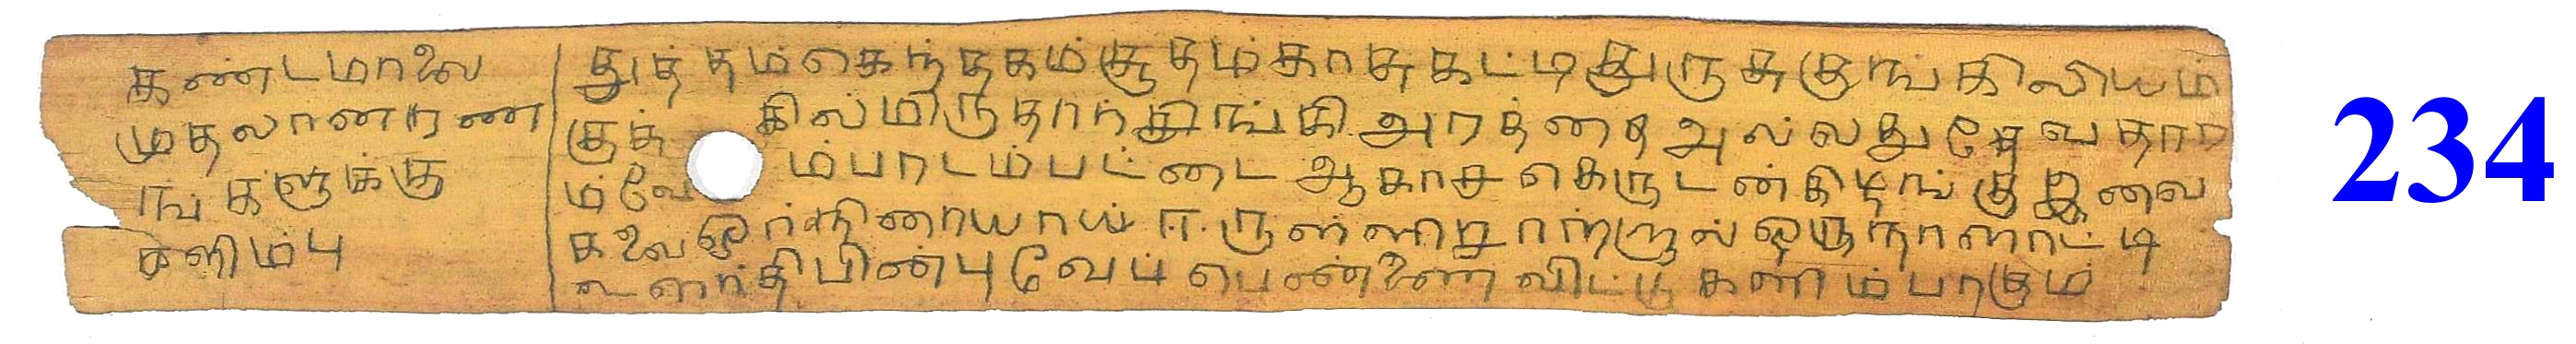 கண்டமாலை
முதலானரண
ங்களுக்கு
களிம்பு
துத்தம்கெந்தகம்சூதம்காசுகட்டிதுருசுகுங்கிலியம்
குக்கில்மிருதார்சிங்கி அரத்தை அல்லது தேவதார
ம்வேம்பாடம்பட்டை ஆகாசகெருடன்கிழங்கு இவை
கலை ஓர்நிறையாய் ஈருள்ளிறசாற்றால் ஒருநாளாட்டி
உலர்த்திபின்புவேப்பெண்ணை விட்டு களிம்பாகும்
234